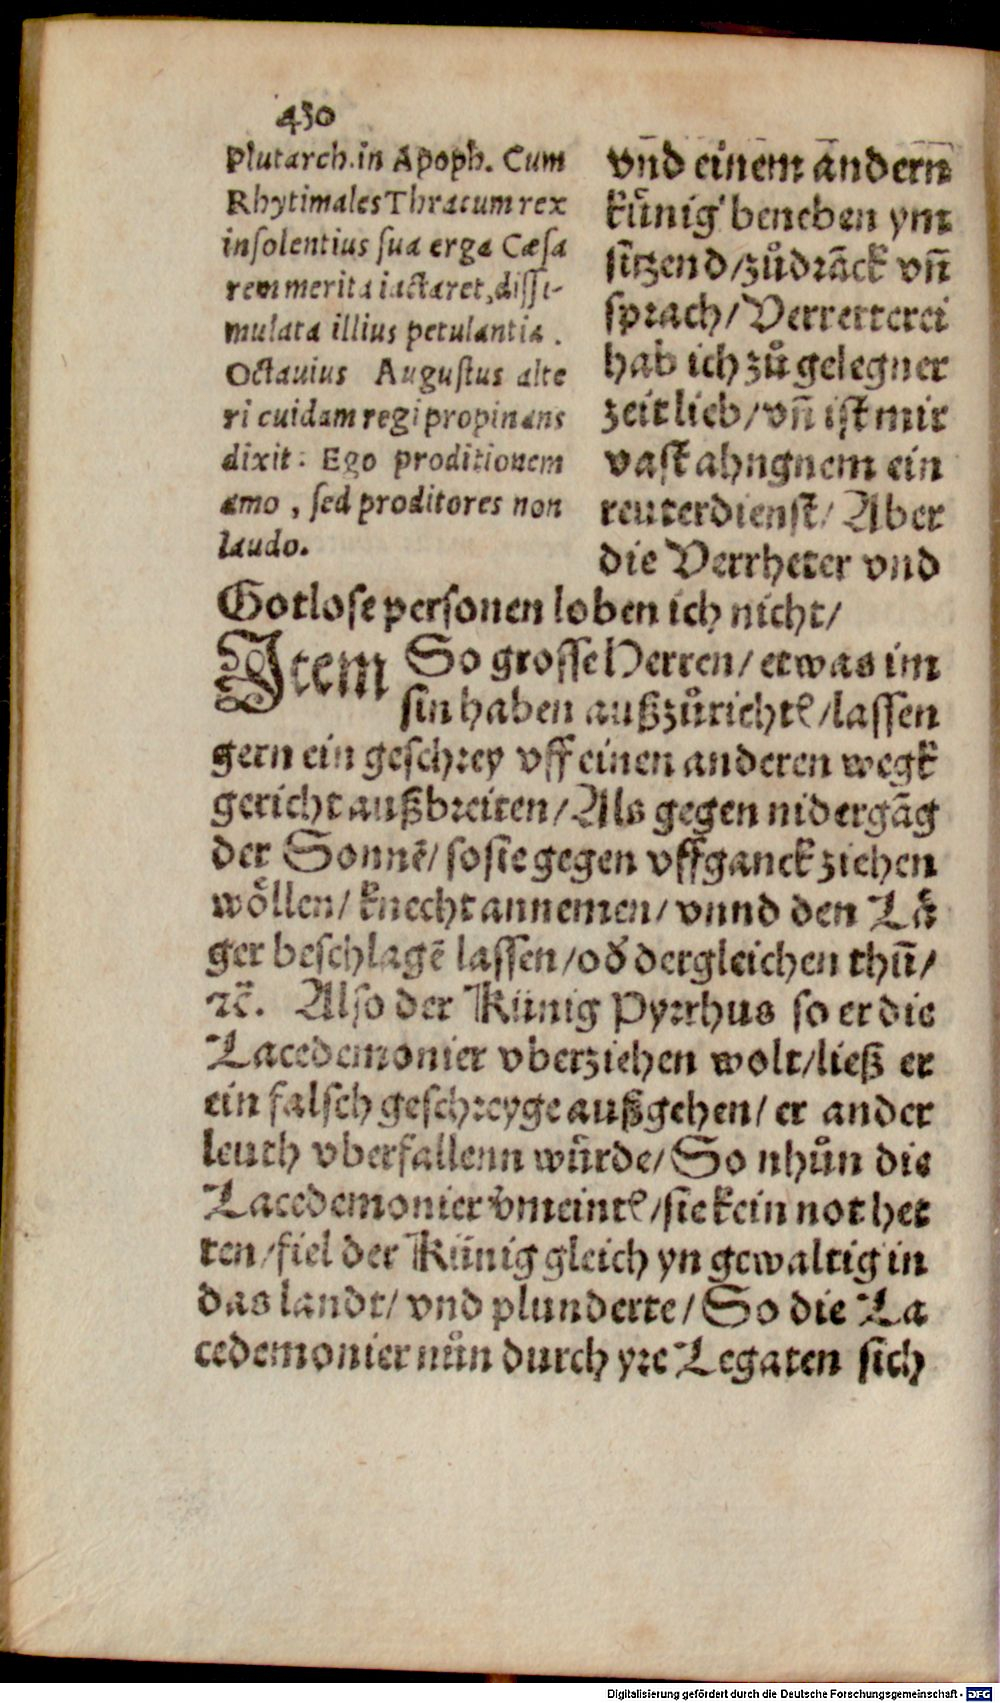 430
Plutarch. in Apoph. Cum
Rhytimales Thracum rex
inſolentius ſua erga Cæſa
rem merita iactaret, diſſi-
mulata illius petulantia.
Octauius Auguſtus alte
ri cuidam regi propinans
dixit: Ego proditionem
amo, ſed proditores non
laudo.
vñd einem andern
kuͤnig beneben ym
ſitzend/zuͦdrãck vñ
ſprach/Verretterei
hab ich zuͦ gelegner
zeit lieb/vñ iſt mir
vaſt ahngnem ein
reuterdienſt/Aber
die Verrheter vnd
Gotloſe perſonen loben ich nicht/
Item So groſſe Herren/etwas im
ſin haben außzuͦrichtẽ/laſſen
gern ein geſchrey vff einen anderen wegk
gericht außbreiten/Als gegen nidergãg
der Sonnẽ/ſo ſie gegen vffganck ziehen
woͤllen/knecht annemen/vnnd den Laͤ
ger beſchlagẽ laſſen/oď dergleichen thuñ/
ꝛc̃. Alſo der Künig Pyrrhus ſo er die
Lacedemonier vberziehen wolt/ließ er
ein falſch geſchreyge außgehen/er ander
leuth vberfallenn wuͤrde/So nhuͦn die
Lacedemonier v̓meintẽ/ſie kein not het
ten/fiel der Künig gleich yn gewaltig in
das landt/vnd plunderte/So die La
cedemonier nuͦn durch yre Legaten ſich
Digitalisierung gefördert durch die Deutsche Forschungsgemeinschaft - DFG